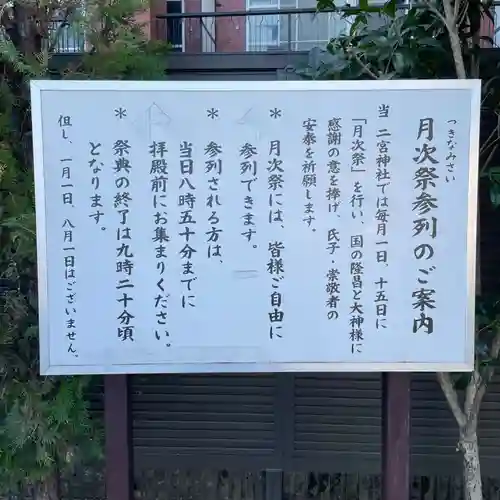 つきなみさい
月次祭参列のご案内
当 二宮神社では毎月一日、十五日に
「月次祭」を行い、国の隆昌と大神様に
感謝の意を捧げ、氏子・崇敬者の
安泰を祈願します。
＊ 月次祭には、皆様ご自由に
参列できます。
＊ 参列される方は、
当日八時五十分までに
拝殿前にお集まりください。
＊ 祭典の終了は九時二十分頃
となります。
但し、一月一日、八月一日はございません。